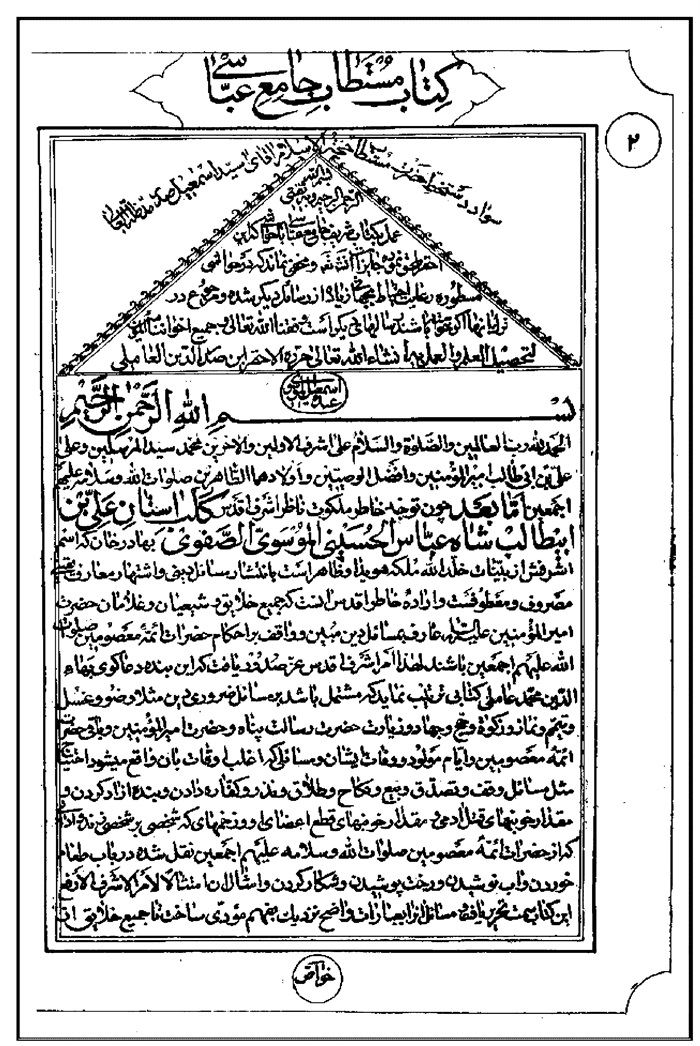 کتاب مستطاب جامع عباسی
۲
سواد دستخط حضرت مستطاب حجة الاسلام آقای سید اسمعیل صدر مدظله العالی
بسم الله
الرحمن الرحیم
عمل بکتاب شریف جامع عباسی با حواشی
احقر خوبست جایز است انشاءالله و مخفی نماند که در حواشی
مسطوره رعایت احتیاط زیاد از رسائل دیگر شده و رجوع در
تعالی و جمیع اخواننا المؤمنین
لتحصیل العلم والعمل به انشاء الله تعالی حرره الاحقر ابن صدر الدین العاملی
عبده اسمعیل الموسوی
بسم الله الرحمن الرحیم
الحمد لله رب العالمین والصلوة والسلام علی اشرف الاولین والاخرین محمد سید المرسلین وعلی
علی بن ابی طالب امیرالمؤمنین وافضل الوصیین واولادهما الطاهرین صلوات الله وسلامه علیهم
اجمعین اما بعد چون توجه خاطر ملکوت ناظر اشرف اقدس کلب استان علی بن
ابیطالب شاه عباس الحسینی الموسوی الصفوی بهادرخان که اسم
اشرفش از بینات خلد الله ملکه هویدا وظاهر است بانتشار مسائل دینی واشتهار معارف یقینی
مصروف ومعطوفست واراده خاطر اقدس انست که جمیع خلایق و شیعیان وغلامان حضرت
امیرالمؤمنین علیه السلام عارف بمسائل دین مبین وواقف بر احکام حضرات ائمه معصومین صلوات
الله علیهم اجمعین باشند لهذا امر اشرف اقدس عز صدور یافت که این بنده دعاگوی بهاء
الدین محمد عاملی کتابی ترتیب نماید که مشتمل باشد بر مسائل ضروری دین مثل وضو وغسل
وتیمم ونماز وزکوة وحج وجهاد وزیارت حضرت رسالت پناه وحضرت امیرالمؤمنین وباقی حضرات
ائمه معصومین وایام مولود ووفات ایشان ومسائلی که اغلب اوقات بان واقع میشود احتیاج
مثل مسائل وقف وتصدق وبیع ونکاح وطلاق ونذر وکفاره دادن وبنده ازاد کردن و
مقدار خونبهای قتل ادمی ومقدار خونبهای قطع اعضای او وزخمهای که شخصی بر شخصی زند وادابی
که از حضرات ائمه معصومین صلوات الله وسلامه علیهم اجمعین نقل شده در باب طعام
خوردن واب نوشیدن ورخت پوشیدن وشکار کردن وامثال ان امتثالا لامر الاشرف الارفع
این کتاب سمت تحریر یافته مسائل انرا بعبارات واضح نزدیک بفهم مؤدی ساخت تا جمیع خلایق از
خواص